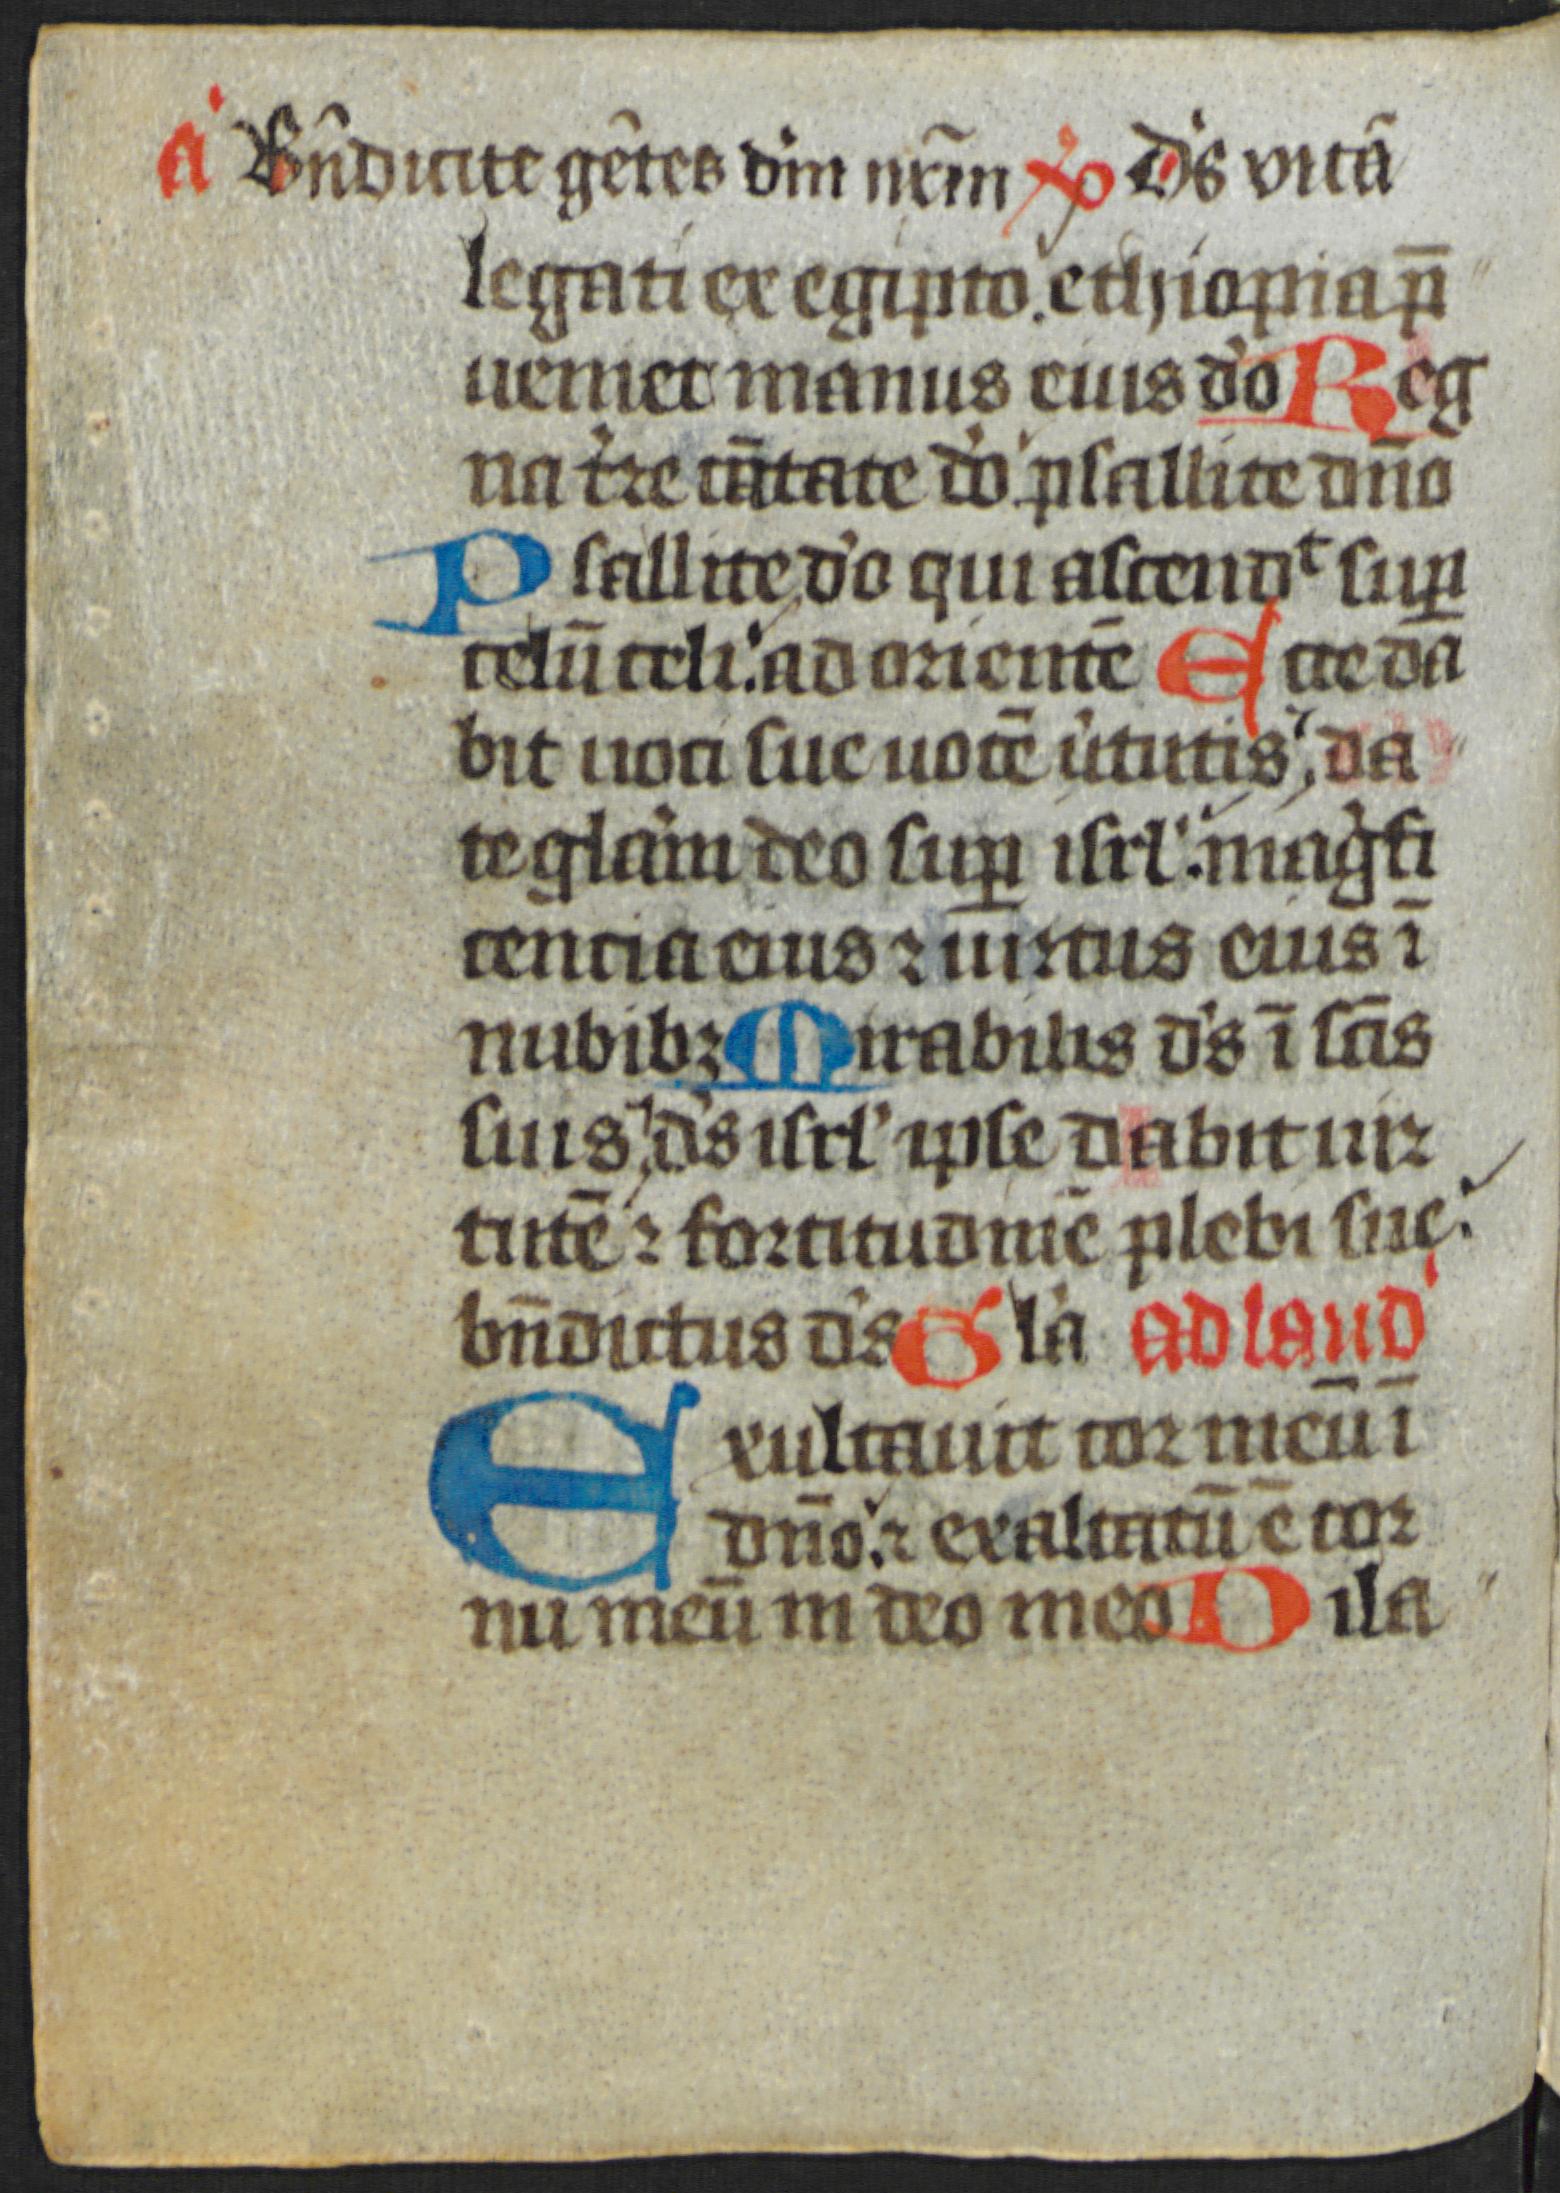 a Bn̄dicite gētes dm̄ nr̄m xp̄ Ds vitā
legati ex egipto. ethiopia p̄
ueniet manus eius do Reg
na tr̄re cātate do psallite dn̄o
Psallite do qui ascendt sup
celū celi. ad orientē Ecce da
bit uoci sue uocē ututis, da
te glām deo sup isrl. magfi
cencia eius ⁊ uirtus eius ī
nubibꝫ Mirabilis ds ī scīs
suis, ds isrl ipse dabit uir
tutē ⁊ fortitudinē plebi sue.
bn̄dictus ds Gla ad laud
Exultauit cor meū ī
dn̄o. ⁊ exaltatū ē cor
nu meū in deo meo Dila